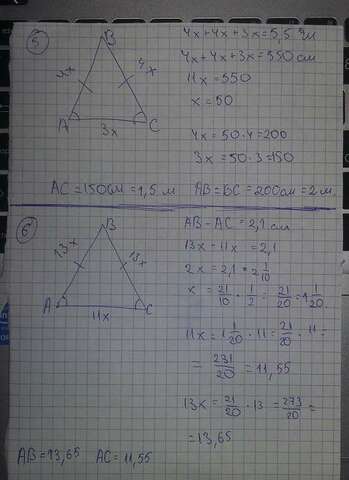 5
B
4x
4x
A
3x
C
4x+4x+3x=5,5 м
4x+4x+3x=550 см
11x=550
x=50
4x=50·4=200
3x=50·3=150
AC=150см=1,5 м AB=BC=200см=2 м.
6
B
13x
13x
A
11x
C
AB-AC=2,1 см
13x=11x=2,1
2x=2,1=2 1/10
x=21/10·1/2=21/20=1 1/20.
11x=1 1/20·11=21/20·11=
=231/20=11,55
13x=21/20·13=273/20=
=13,65
AB=13,65 AC=11,55